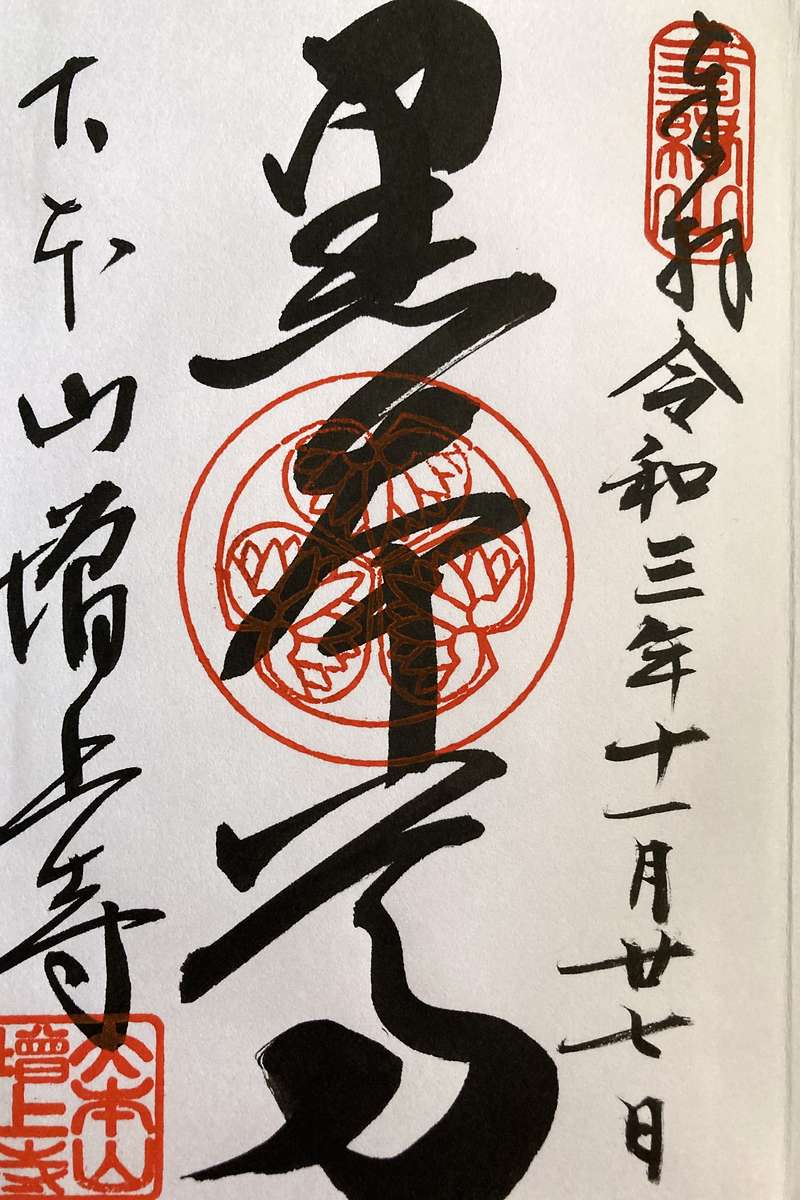 奉拝 令和三年十一月廿七日
三縁山
黒本尊
大本山増上寺
大本山
増上寺